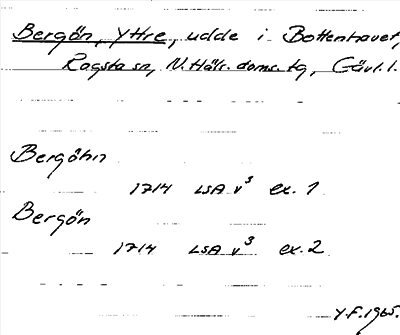 Bergön, Yttre, udde i Bottenhavet,
Rogsta sn, N. Häls. doms. tg, Gävl. l.
Bergöhn
1714 LSA v³ ex. 1
Bergön
1714 LSA v³ ex. 2
Y.F. 1965.